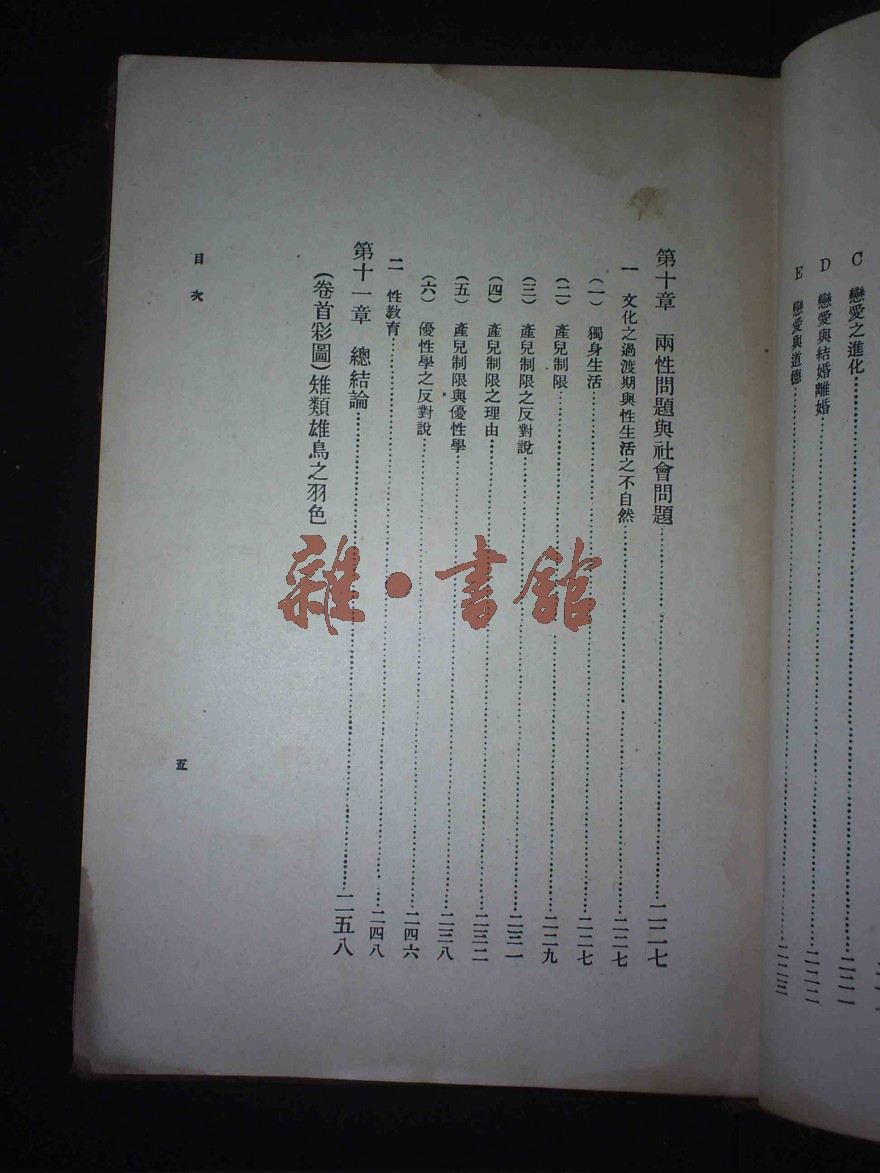 C 戀愛之進化……二二一
D 戀愛與結婚離婚……二二二
E 戀愛與道德……二二三
第十章 兩性問題與社會問題……二二七
一 文化之過渡期與性生活之不自然……二二七
(一) 獨身生活……二二七
(二) 產兒制限……二二九
(三) 產兒制限之反對說……二三一
(四) 產兒制限之理由……二三二
(五) 產兒制限與優性學……二三八
(六) 優性學之反對說……二四六
二 性教育……二四八
第十一章 總結論……二五八
(卷首彩圖) 雉類雄鳥之羽色
目次
五
雜·書館